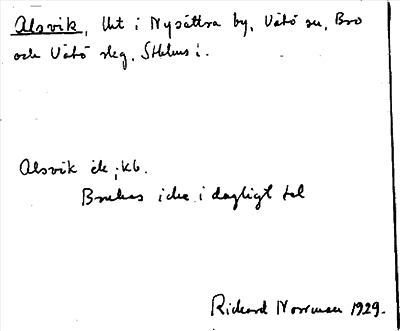 Alsvik, lht i Nysättra by, Vätö sn, Bro
och Vätö skg, Sthlms l.
Alsvik ek ; kb.
Brukas icke i dagligt tal
Rickard Norrman 1929.